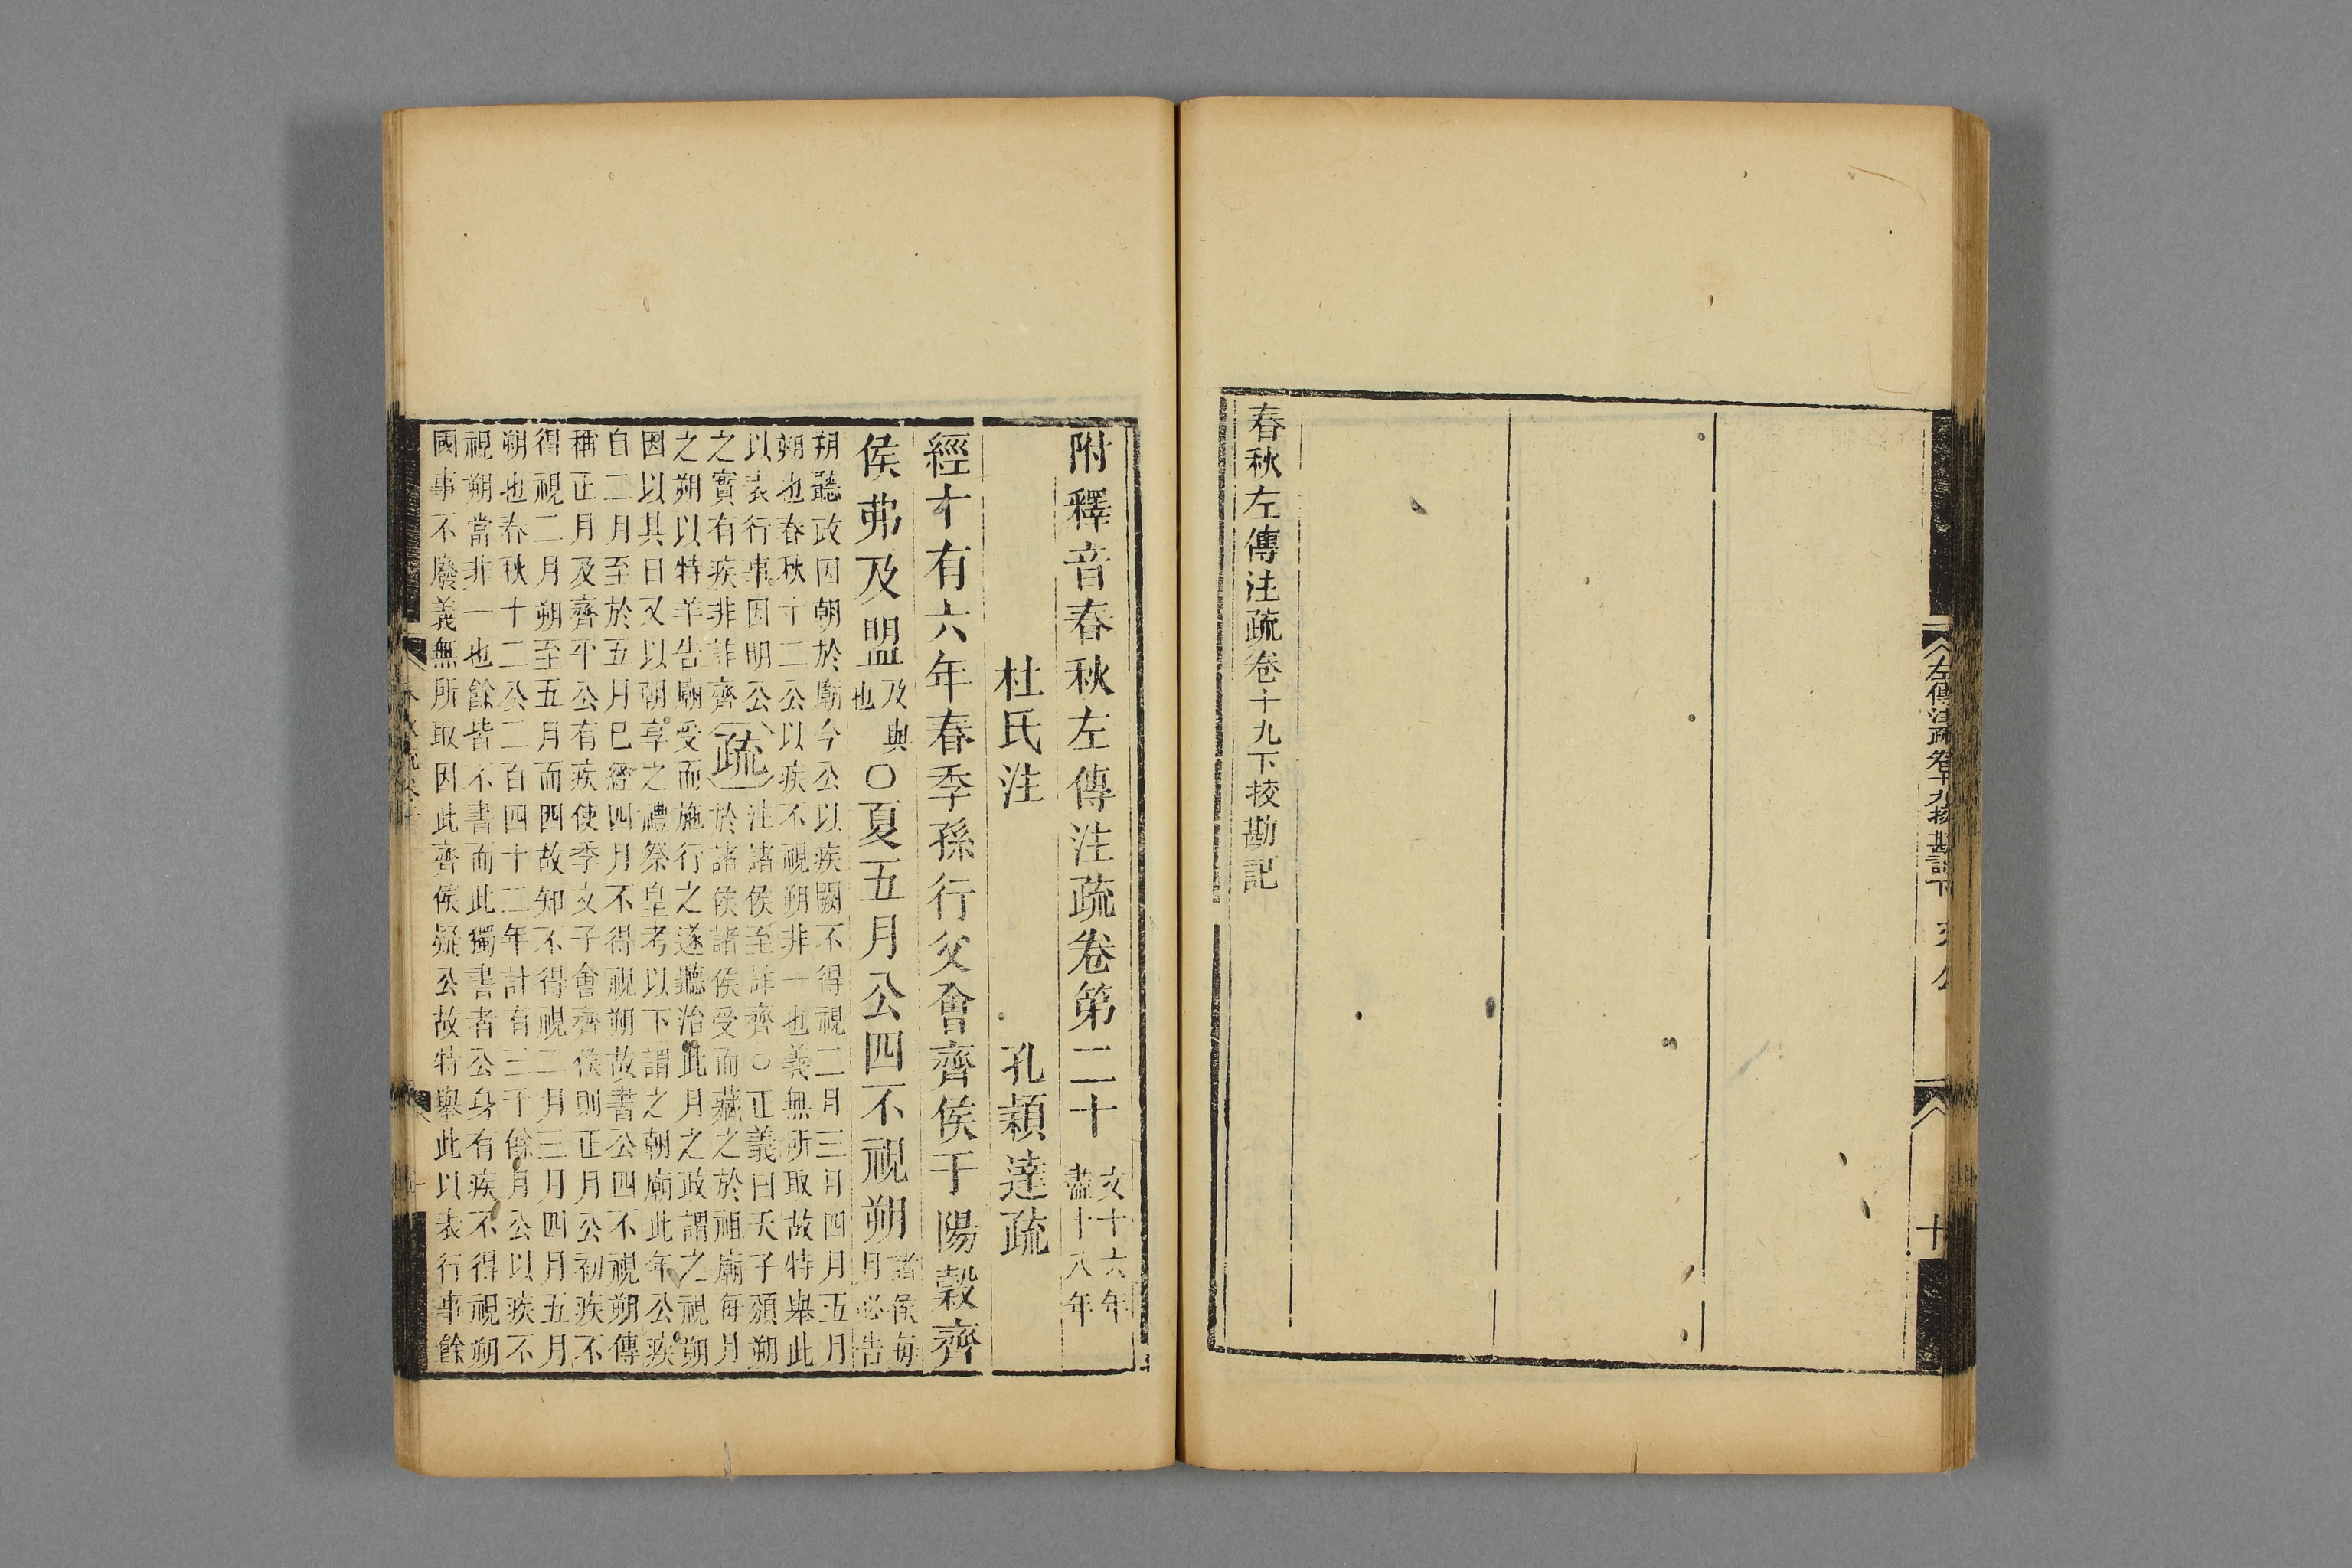 左傳注疏卷十九校勘記下 文公 十
春秋左傳注疏卷十九下挍勘記
附釋音春秋左傳注疏卷第二十 文十六年
盡十八年
杜氏注 孔穎達疏
經十有六年春季孫行父會齊侯于陽穀齊
侯弗及盟 及與
也 ○夏五月公四不視朔 諸侯每
月必告
朔聽政因朝於廟今公以疾闕不得視二月三月四月五月
朔也春秋十二公以疾不視朔非一也義無所取故特舉此
以表行事因明公
之實有疾非詐齊
疏
注諸侯至詐齊○正義曰天子頒朔
於諸侯諸侯受而藏之於祖廟每月
之朔以特羊告廟受而施行之遂聽治此月之政謂之視朔
因以其日又以朝享之禮祭皇考以下謂之朝廟此年公疾
自二月至於五月已經四月不得視朔故書公四不視朔傳
稱正月及齊平公有疾使季文子會齊侯則正月公初疾不
得視二月朔至五月而四故知不得視二月三月四月五月
朔也春秋十二公二百四十二年計有三千餘月公以疾不
視朔當非一也餘皆不書而此獨書者公身有疾不得視朔
國事不廢義無所取因此齊侯疑公故特舉此以表行事餘